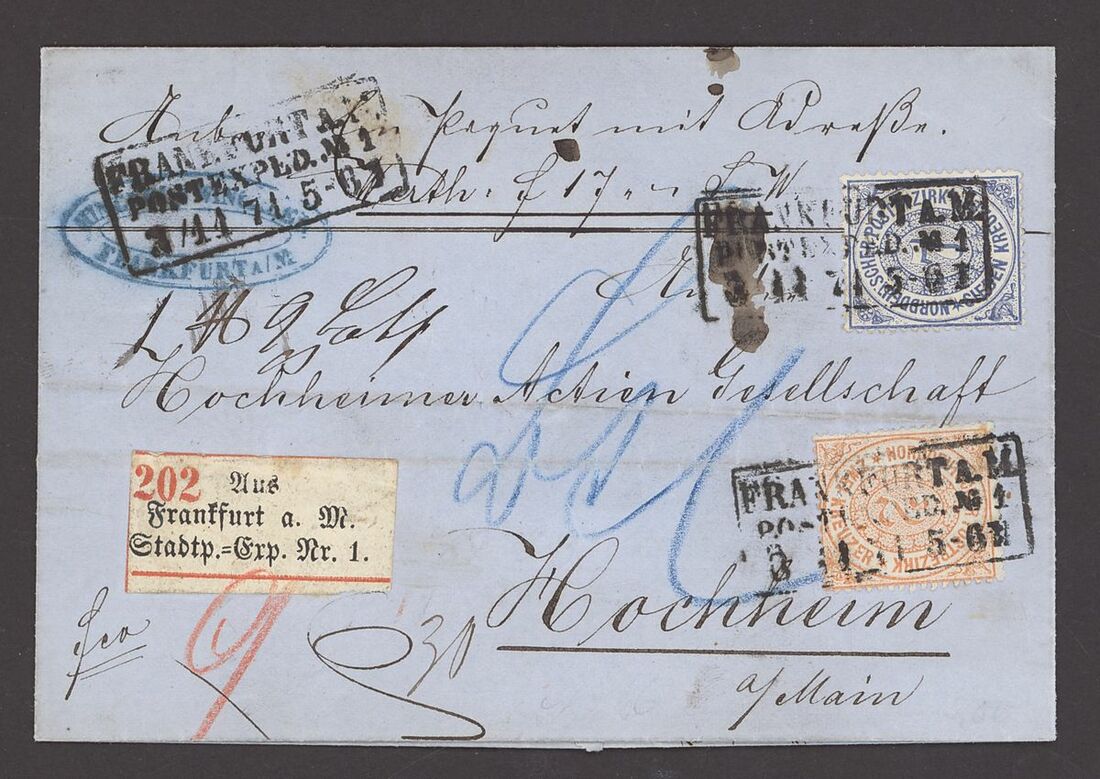 Paquet mit Adreße.
FRANKFURT A.M.
POSTEXPED. No 1
3/11 71 5-6N
Werth: f 17
FRANKFURT A.M.
POSTEXPED. No 1
3/11 71 5-6N
NORDDEUTSCHER POSTBEZIRK
KREUZER
7
FRANKFURT A/M
9 Loth
Hochheimer Actien Gesellschaft
202 Aus
Frankfurt a. M.
Stadtp.=Exp. Nr. 1.
FRANKFURT A.M.
POSTEXPED. No 1
3 11 71 5-6N
Hochheim
a/Main
fco
9
30